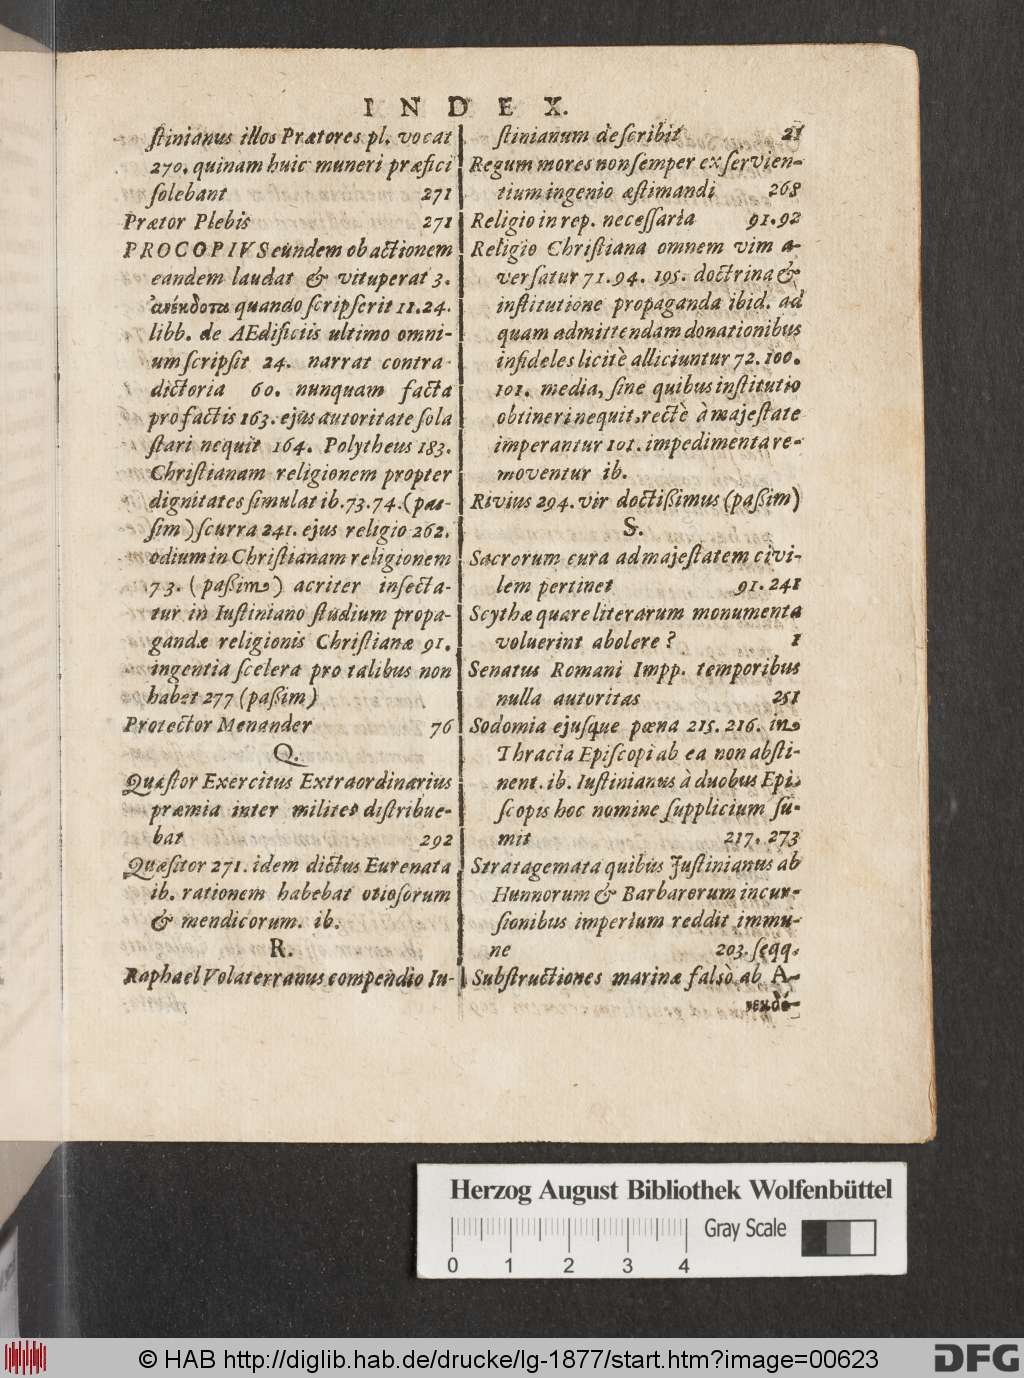 INDEX.
ſtinianus illos Prætores pl. vocat
270. quinam huic muneri præfici
ſolebant 271
Prætor Plebis 271
PROCOPIVS eundem ob actionem
eandem laudat & vituperat 3.
ἀνέκδοτα quando ſcripſerit 11.24.
libb. de AEdificiis ultimo omni-
um ſcripſit 24. narrat contra-
dictoria 60. nunquam facta
pro factis 163. ejus autoritate ſola
ſtari nequit 164. Polytheus 183.
Chriſtianam religionem propter
dignitates ſimulat ib. 73.74. (paſ-
ſim) ſcurra 241. ejus religio 262.
odium in Chriſtianam religionem
73. (paßim) acriter inſecta-
tur in Iuſtiniano ſtudium propa-
gandæ religionis Chriſtianæ 91.
ingentia ſcelera pro talibus non
habet 277 (paßim)
Protector Menander 76
Q.
Quæſtor Exercitus Extraordinarius
præmia inter milites diſtribue-
bat 292
Quæſitor 271. idem dictus Eurenata
ib. rationem habebat otioſorum
& mendicorum. ib.
R.
Raphael Volaterranus compendio Iu-
ſtinianum deſcribit 21
Regum mores non ſemper ex ſervien-
tium ingenio æſtimandi 268
Religio in rep. neceſſaria 91.92
Religio Chriſtiana omnem vim a-
verſatur 71. 94. 195. doctrina &
inſtitutione propaganda ibid. ad
quam admittendam donationibus
infideles licitè alliciuntur 72. 100.
101. media, ſine quibus inſtitutio
obtineri nequit, rectè à majeſtate
imperantur 101. impedimenta re-
moventur ib.
Rivius 294. vir doctißimus (paßim)
S.
Sacrorum cura ad majeſtatem civi-
lem pertinet 91. 241
Scythæ quare literarum monumenta
voluerint abolere? 1
Senatus Romani Impp. temporibus
nulla autoritas 251
Sodomia ejuſque pœna 215. 216. in
Thracia Epiſcopi ab ea non abſti-
nent. ib. Iuſtinianus à duobus Epi-
ſcopis hoc nomine ſupplicium ſu-
mit 217. 273
Stratagemata quibus Juſtinianus ab
Hunnorum & Barbarorum incur-
ſionibus imperium reddit immu-
ne 203. ſeqq.
Subſtructiones marinæ falsò ab A-
Herzog August Bibliothek Wolfenbüttel
Gray Scale
0 1 2 3 4
© HAB http://diglib.hab.de/drucke/lg-1877/start.htm?image=00623
DFG